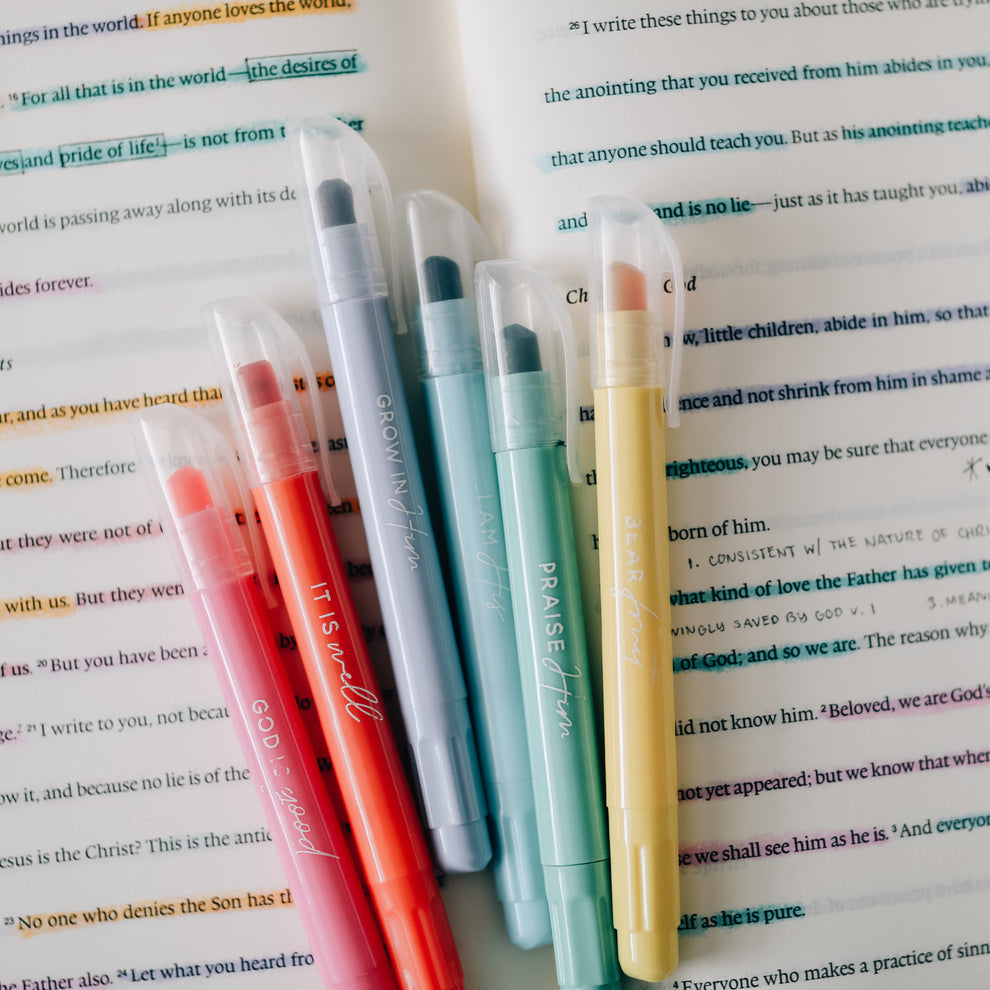 ings in the world. If anyone loves the world,
16 For all that is in the world—the desires of
and pride of life—is not from
world is passing away along with its
ides forever.
ts
and as you have heard that
come. Therefore
they were not of
with us. But they
of us. 20 But you have been
21 I write to you, not
ow it, and because no lie is of the
esus is the Christ? This is the
23 No one who denies the Son has
he Father also. 24 Let what you heard
26 I write these things to you about those who are
the anointing that you received from him abides in you,
that anyone should teach you. But as his anointing
and is no lie—just as it has taught you,
little children, abide in him, so that
and not shrink from him in shame
righteous, you may be sure that everyone
born of him.
1. CONSISTENT W/ THE NATURE OF
what kind of love the Father has given
SAVED BY GOD V. 1 3.
of God; and so we are. The reason why
did not know him. 2 Beloved, we are God's
not yet appeared; but we know that
we shall see him as he is. 3 And
as he is pure.
4 Everyone who makes a practice of
GOD IS good
IT IS well
GROW IN Him
I AM His
PRAISE Him
BEAR fruit